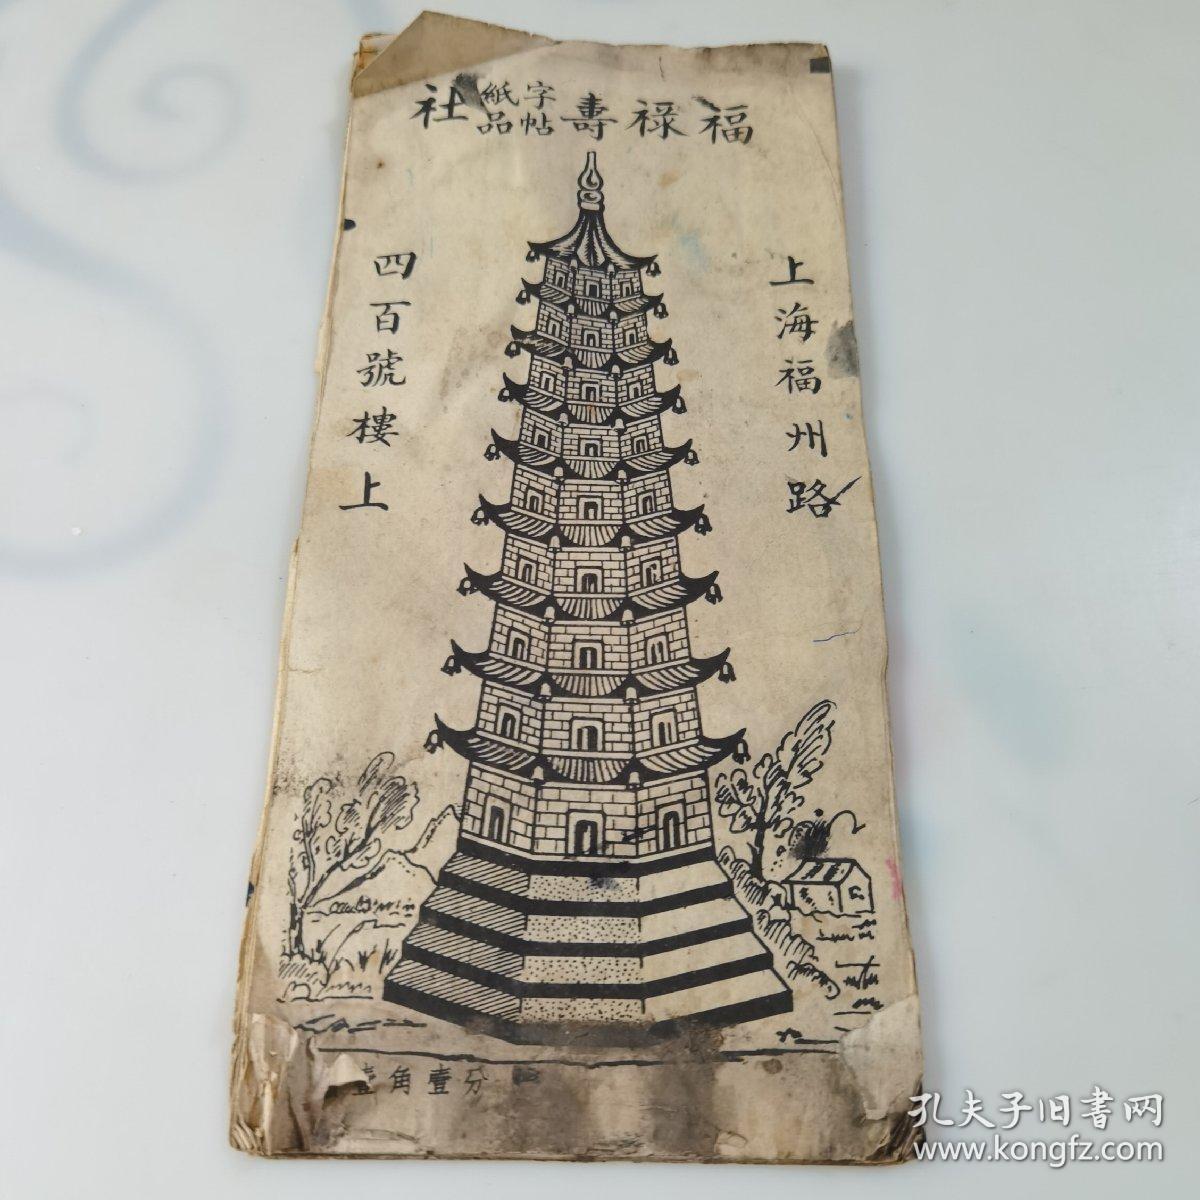 福祿壽字帖紙品社
上海福州路
四百號樓上
壹角壹分
孔夫子旧书网
www.kongfz.com